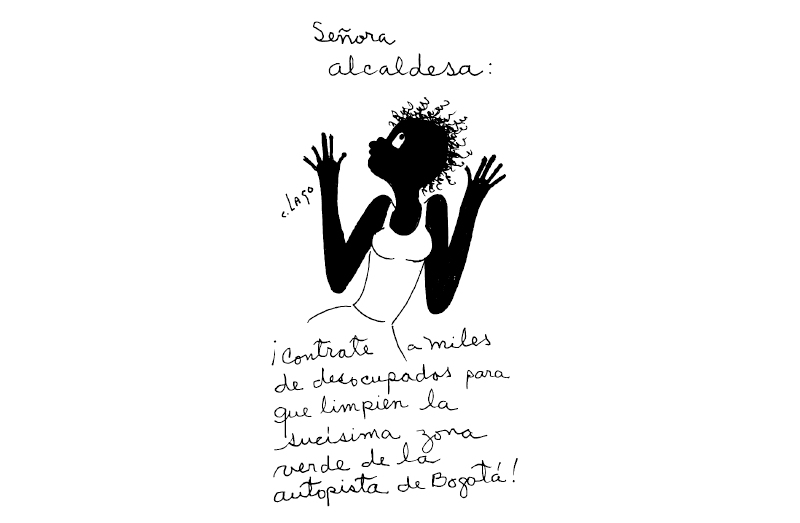 Señora
alcaldesa:
c. LAGO
¡Contrate a miles
de desocupados para
que limpien la
sucísima zona
verde de la
autopista de Bogotá!